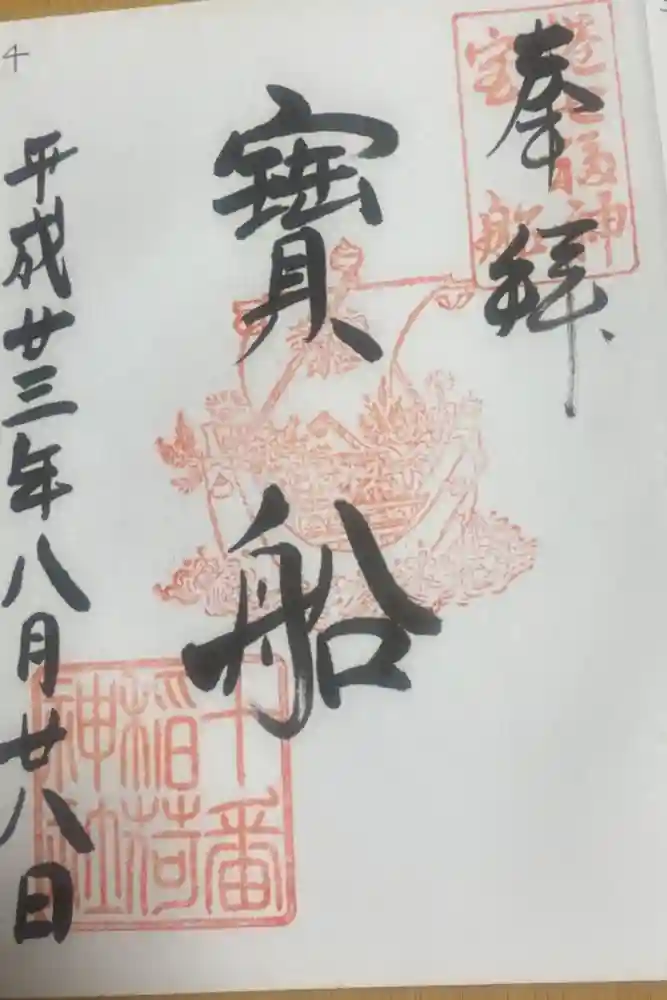 奉拝
港七福神
宝船
寳船
十番
稲荷
神社
平成廿三年八月廿八日
4